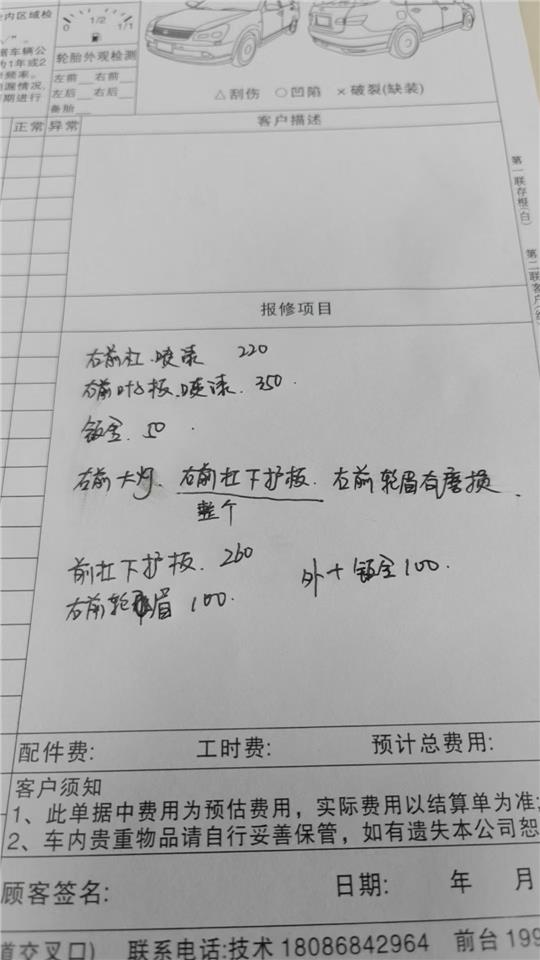 内区域检
0 1/2 1/1
据车辆公
为1年或2
频率。
漏情况,
期进行
轮胎外观检测
左前__ 右前__
左后__ 右后__
备胎__
△刮伤 ○凹陷 ×破裂(缺装)
正常 异常
客户描述
第一联存根(白)
第二联客户(
报修项目
右前杠.喷漆 220
右前叶子板.喷漆.350.
钣金.50.
右前大灯. 右前杠下护板. 右前轮眉有磨损.
整个
前杠下护板.260
外+钣金100.
右前轮眉 100.
配件费: 工时费: 预计总费用:
客户须知
1、此单据中费用为预估费用，实际费用以结算单为准
2、车内贵重物品请自行妥善保管，如有遗失本公司恕
顾客签名: 日期: 年 月
道交叉口) 联系电话:技术 18086842964 前台 199